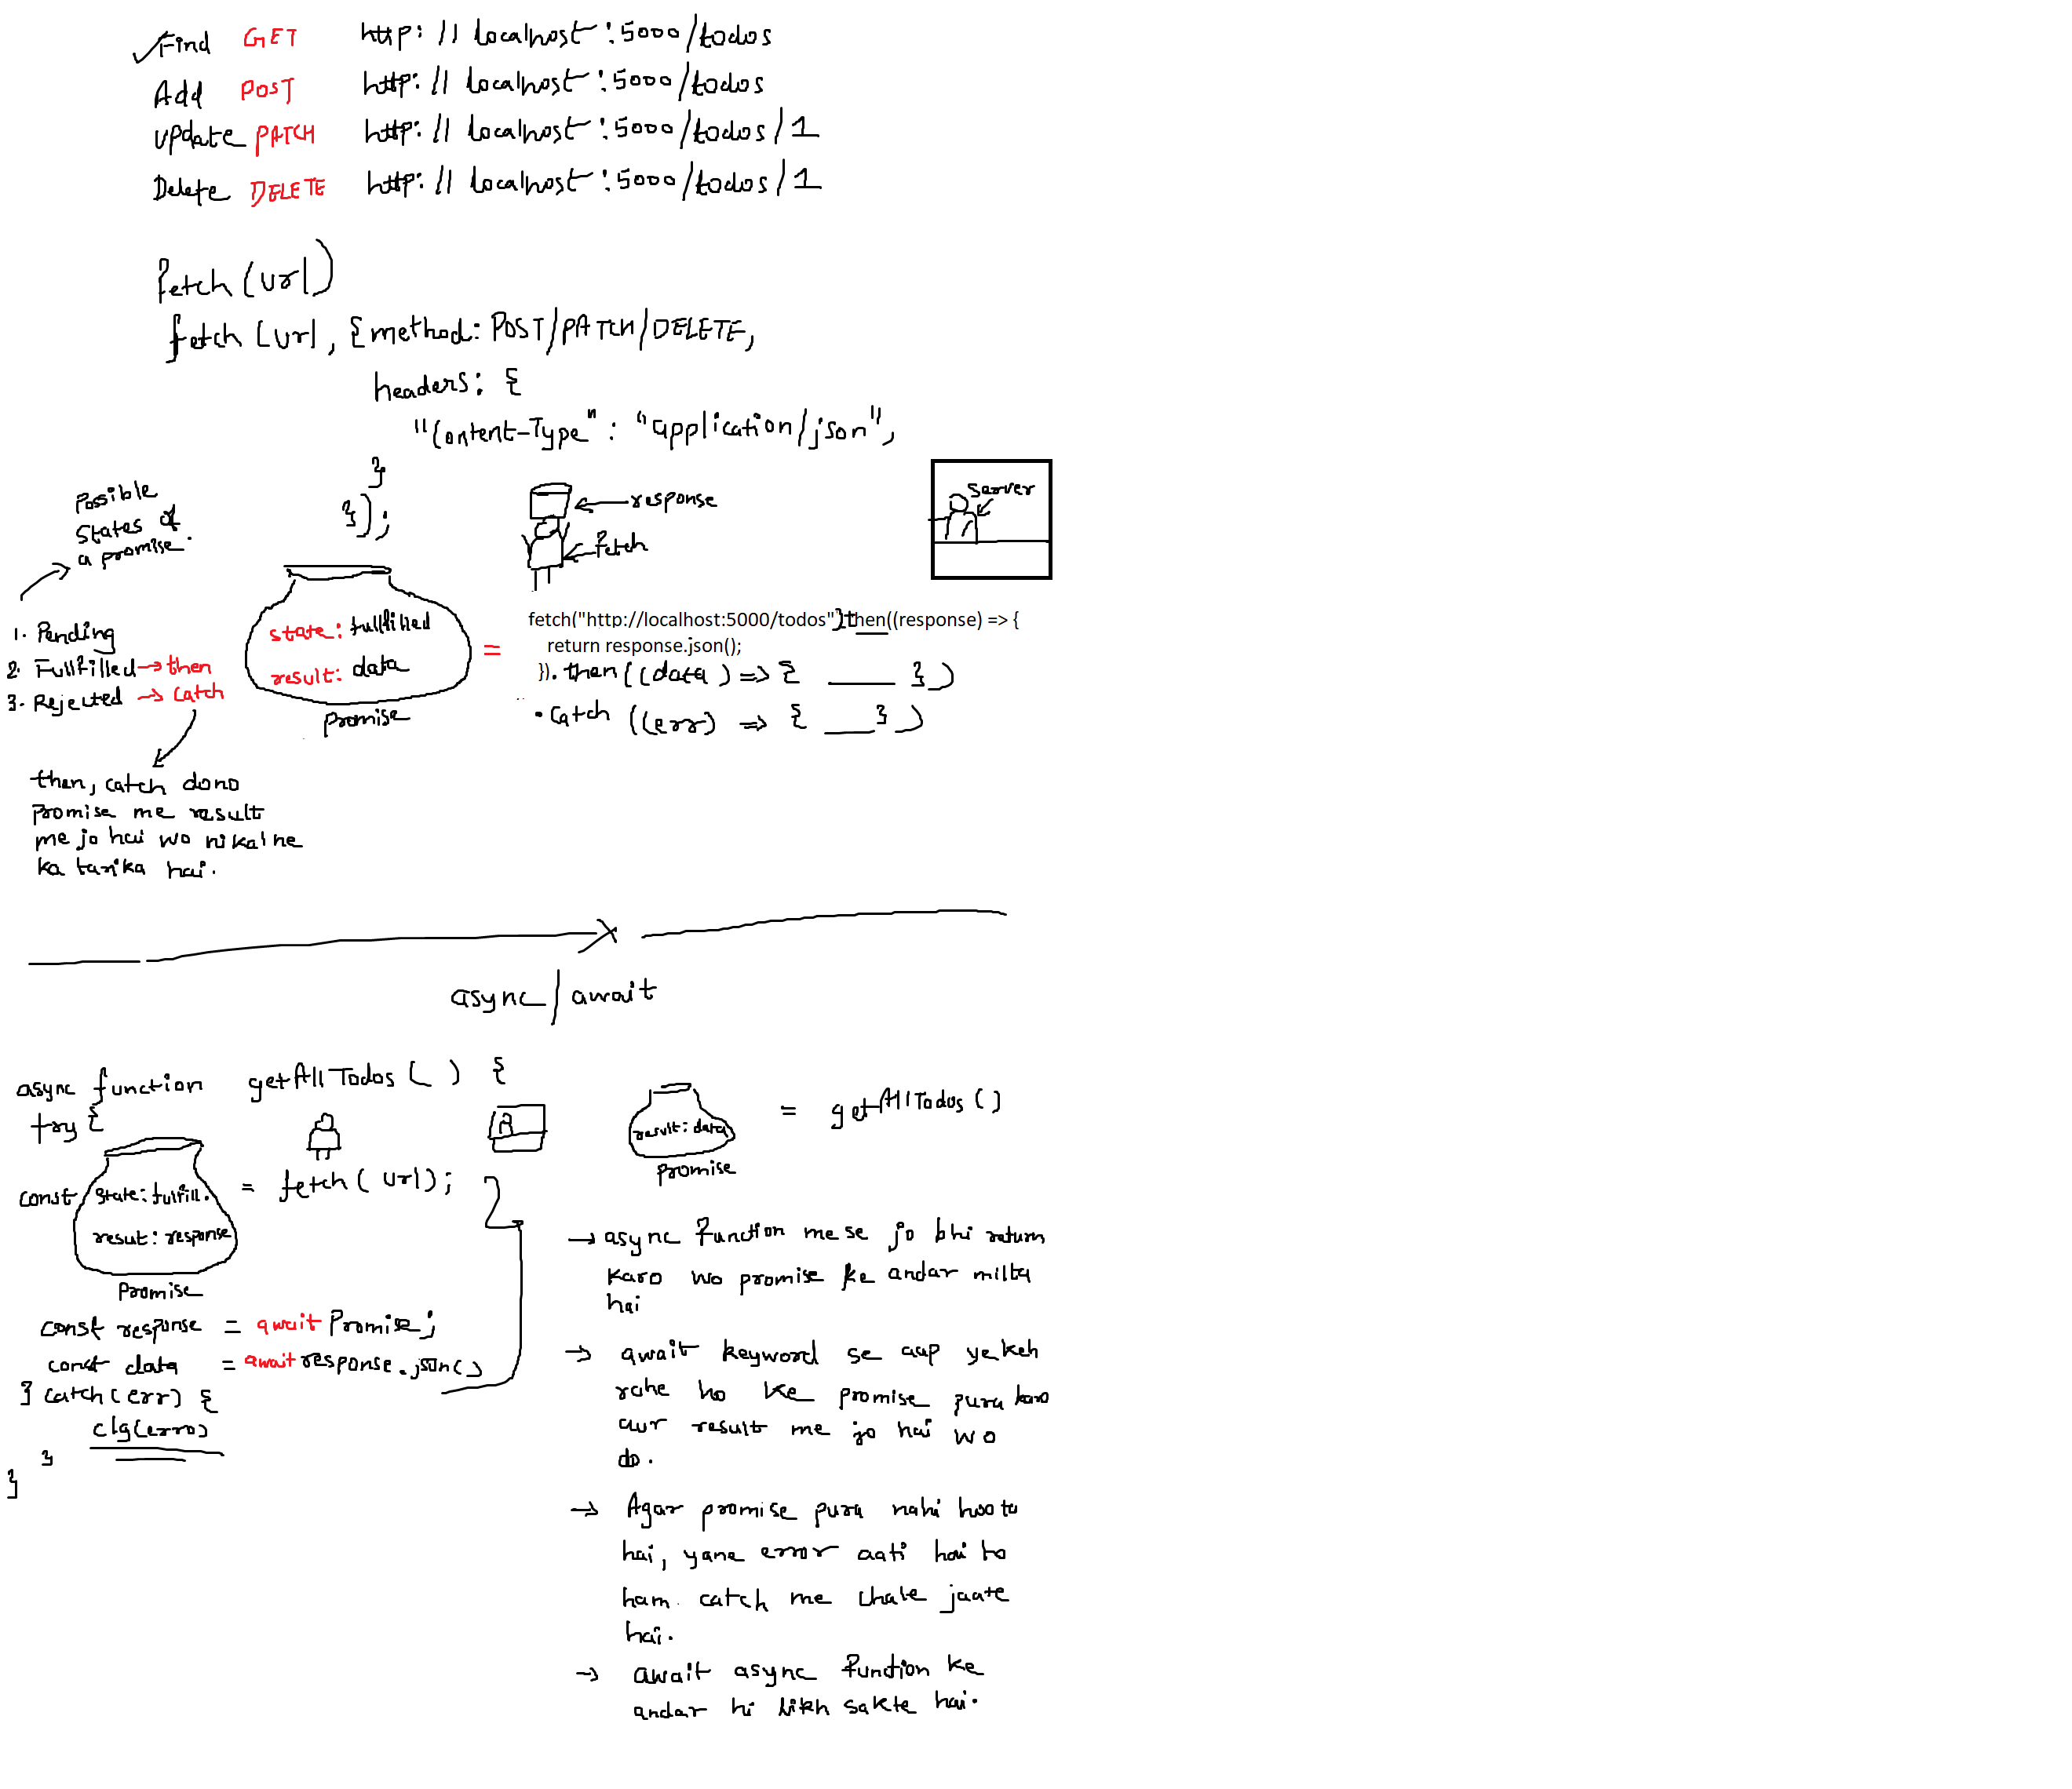 Find GET http://localhost:5000/todos
Add POST http://localhost:5000/todos
Update PATCH http://localhost:5000/todos/1
Delete DELETE http://localhost:5000/todos/1
fetch(url)
fetch(url, {method: POST/PATCH/DELETE,
headers: {
"Content-Type": "application/json",
}
});
Possible
States of
a promise.
1. Pending
2. Fullfilled → then
3. Rejected → catch
then, catch dono
promise me result
me jo hai wo nikalne
ka tarika hai.
state: fullfilled
result: data
Promise
=
response
fetch
server
fetch("http://localhost:5000/todos").then((response) => {
return response.json();
}).then((data) => { ____ })
.catch ((err) => { ____ })
async/await
async function getAllTodos() {
try {
const
state: fulfill.
result: response
Promise
= fetch(url);
const response = await Promise;
const data = await response.json()
} catch(err) {
clg(erro)
}
}
result: data
promise
= getAllTodos()
→ async function me se jo bhi return
karo wo promise ke andar milta
hai
→ await keyword se aap ye keh
rahe ho ke promise pura karo
aur result me jo hai wo
do.
→ Agar promise pura nahi hoota
hai, yane error aati hai to
ham catch me chale jaate
hai.
→ await async function ke
andar hi likh sakte hai.